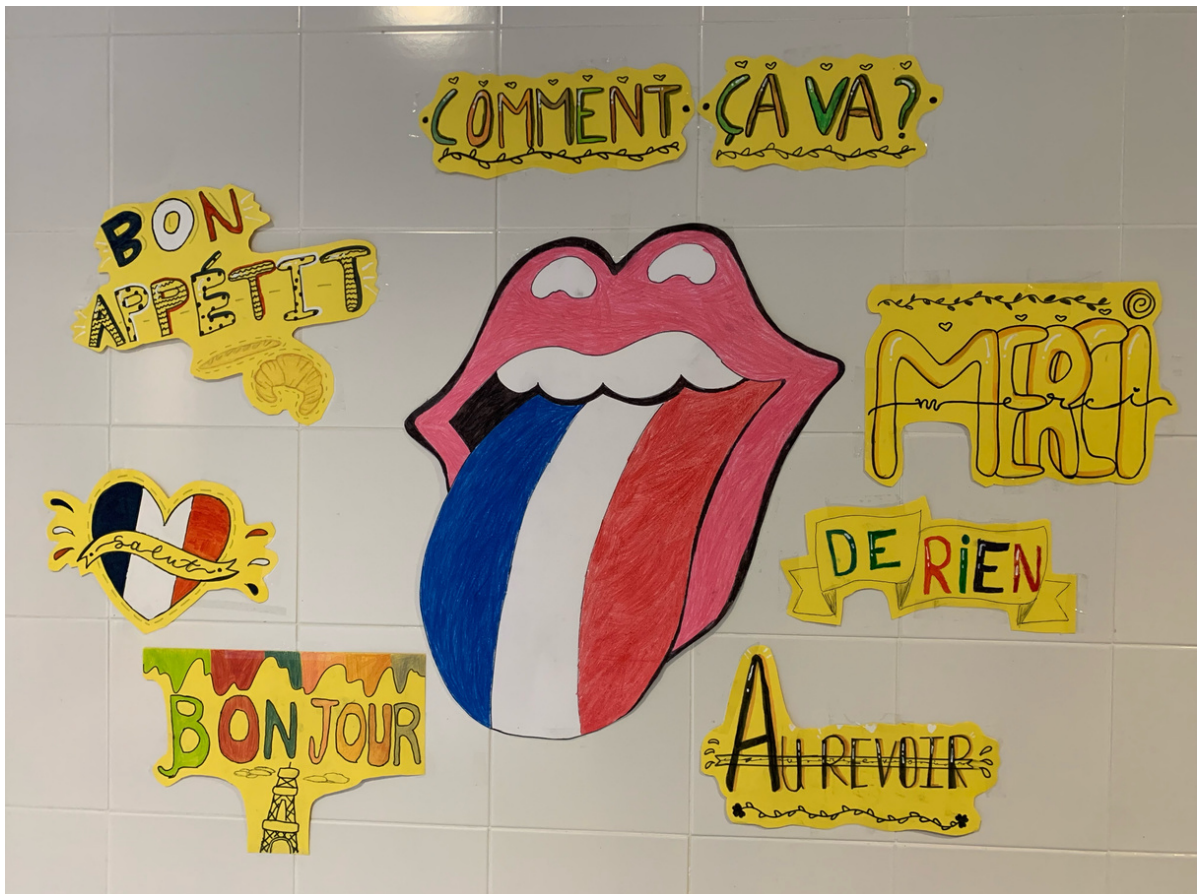 COMMENT ÇA VA?
BON
APPÉTIT
MERCI
merci
salut
DE RiEN
BONJOUR
AU REVOIR